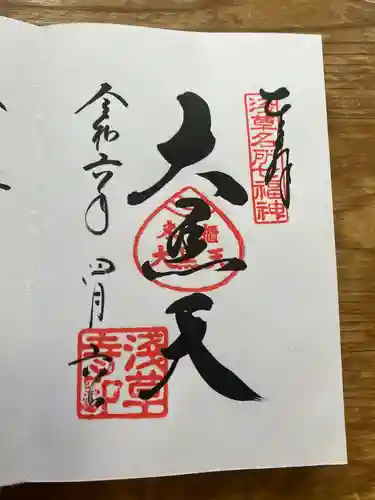 奉拝
浅草名所七福神
大黒天
令和六年
四月
六日
浅草寺印